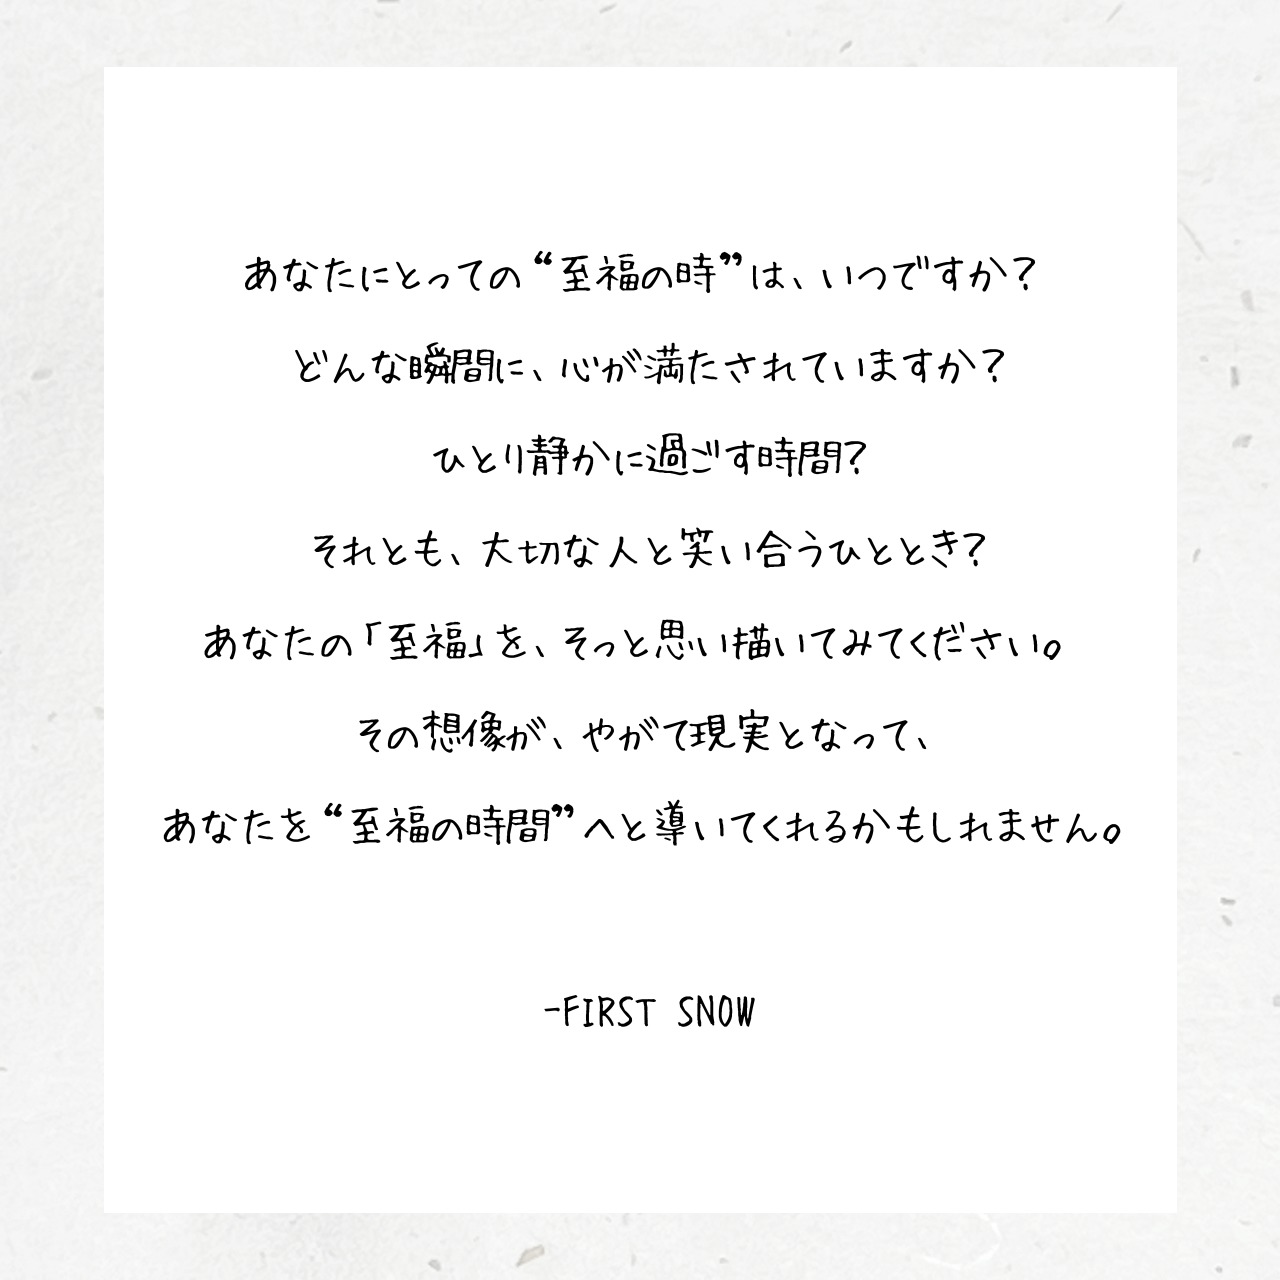 あなたにとっての“至福の時”は、いつですか？
どんな瞬間に、心が満たされていますか？
ひとり静かに過ごす時間？
それとも、大切な人と笑い合うひととき？
あなたの「至福」を、そっと思い描いてみてください。
その想像が、やがて現実となって、
あなたを“至福の時間”へと導いてくれるかもしれません。
-FIRST SNOW